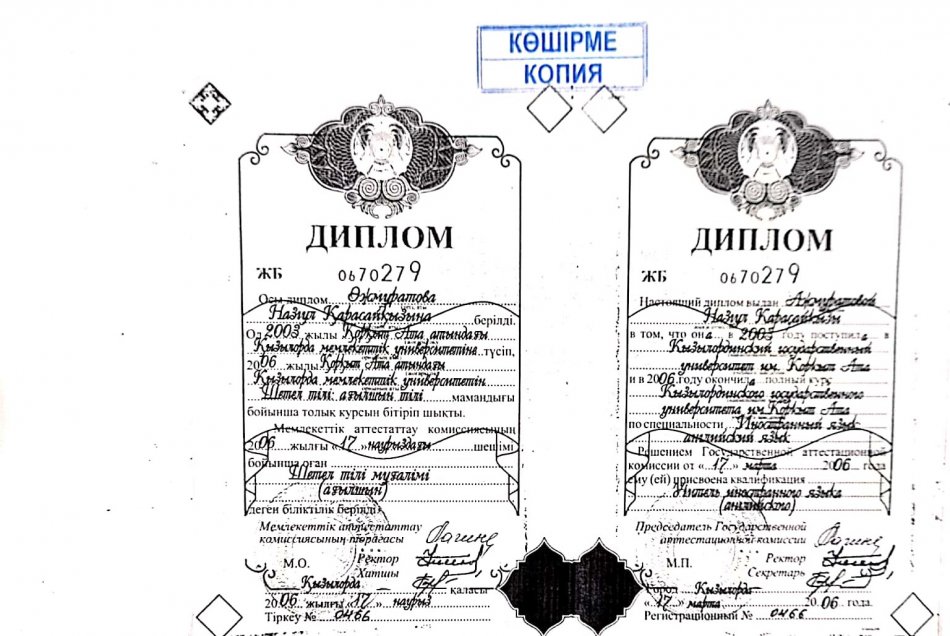 КӨШІРМЕ
КОПИЯ
ДИПЛОМ
ЖБ 0670279
Осы диплом Әжмуратова
Назгүл Қарасайқызына берілді.
Ол 2003 жылы Қорқыт Ата атындағы
Қызылорда мемлекеттік университетіне түсіп,
2006 жылы Қорқыт Ата атындағы
Қызылорда мемлекеттік университетін
Шетел тілі: ағылшын тілі мамандығы
бойынша толық курсын бітіріп шықты.
Мемлекеттік аттестаттау комиссиясының
2006 жылғы «17» наурыздағы шешімі
бойынша оған
Шетел тілі мұғалімі
(ағылшын)
деген біліктілік берілді
Мемлекеттік аттестаттау
комиссиясының төрағасы
М.О. Ректор
Хатшы
Қызылорда қаласы
2006 жылғы «17» наурыз
Тіркеу № 0466
ДИПЛОМ
ЖБ 0670279
Настоящий диплом выдан Ажмуратовой
Назгул Карасайкызы
в том, что она в 2003 году поступила в
Кызылординский государственный
университет им. Коркыт Ата
и в 2006 году окончила полный курс
Кызылординского государственного
университета им. Коркыт Ата
по специальности Иностранный язык
английский язык
Решением Государственной аттестационной
комиссии от «17» марта 2006 года
ему (ей) присвоена квалификация
Учитель иностранного языка
(английского)
Председатель Государственной
аттестационной комиссии
М.П. Ректор
Секретарь
Город Кызылорда
«17» марта 2006 года.
Регистрационный № 0466